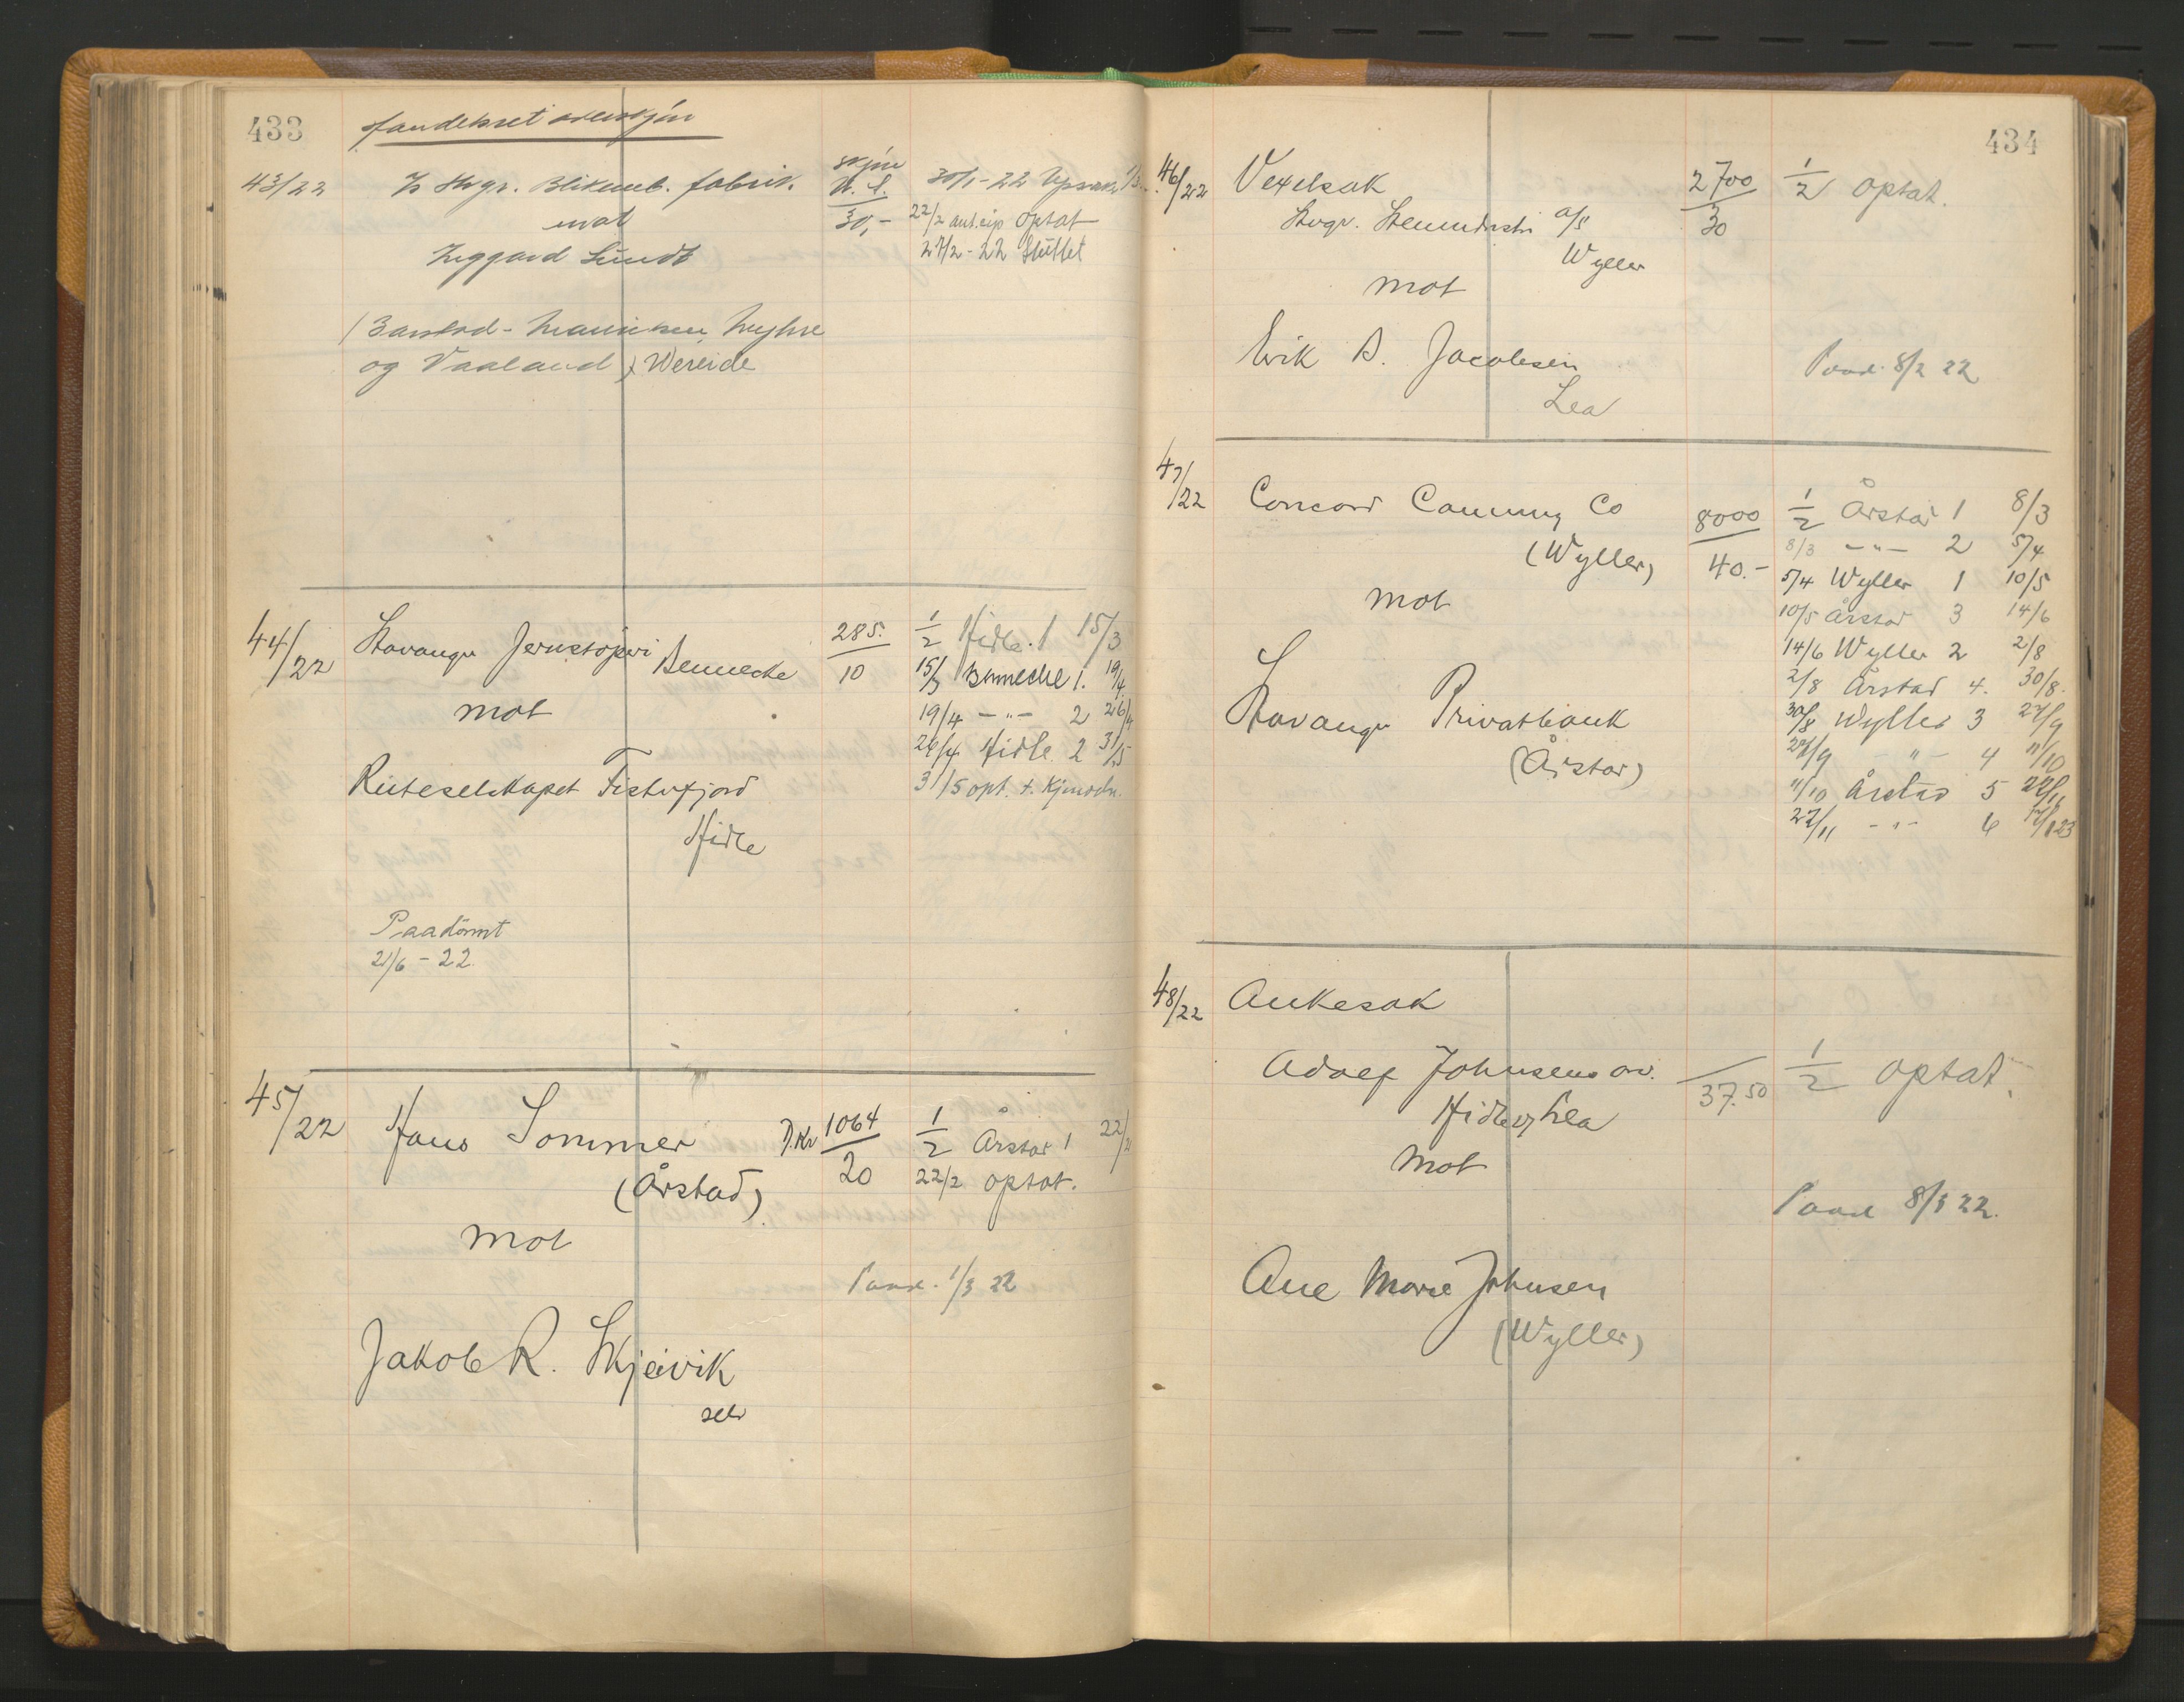 433
43/22
mot
Lundt
skjøn
30,-
30/1-22
22/2 optat
27/2-22 Sluttet
og Vaaland), Wereide
44/22
Stavanger Jernstøperi
Bennecke
mot
Ruteselskapet Fisterfjord
Hidle
285.
10
1/2 Hidle. 1 15/3
15/3 Bennecke 1. 19/4
19/4 -"- 2 26/4
26/4 Hidle 2 31/5
31/5 opt. t.
Paadømt
21/6-22.
45/22
Hans Sommer
(Årstad)
mot
Jakob R. Skjeivik
selv
D.Kr 1064
20
1/2 Årstad 1 22/2
22/2 optat.
Paad. 1/3 22
434
46/22
Vexelsak
Stvgr. a/s
Wyller
mot
Erik B. Jacobsen
Lea
2700
30
1/2 optat.
Paad. 8/2 22
47/22
Concord Canning Co
(Wyller)
mot
Stavanger Privatbank
(Årstad)
8000
40.-
1/2 Årstad 1 8/3
8/3 -"- 2 5/4
5/4 Wyller 1 10/5
10/5 Årstad 3 14/6
14/6 Wyller 2 2/8
2/8 Årstad 4. 30/8.
30/8 Wyller 3 27/9
27/9 -"- 4 11/10
11/10 Årstad 5 22/11
22/11 -"- 6
48/22
Ankesak
Adolf Johnsens
Hidle og Lea
mot
Ane Marie Johnsen
(Wyller)
37.50
1/2 optat.
Paad 8/3 22.